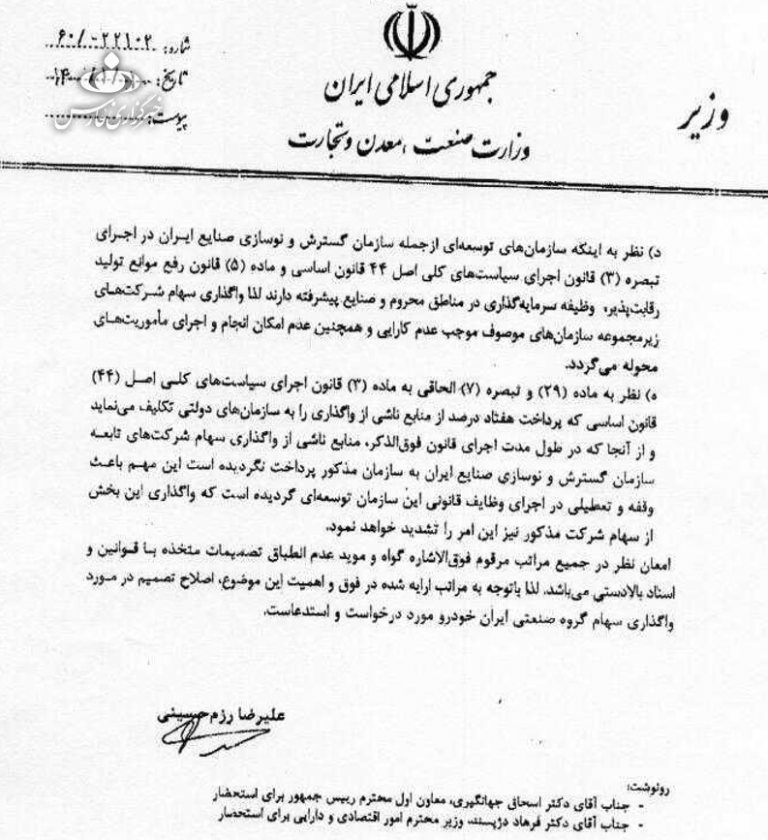 جمهوری اسلامی ایران
وزارت صنعت، معدن و تجارت
وزیر
شماره: ۶۰/۰۲۲۱۰۲
تاریخ:
پیوست:
خبرگزاری فارس
د) نظر به اینکه سازمان‌های توسعه‌ای ازجمله سازمان گسترش و نوسازی صنایع ایران در اجرای
تبصره (۳) قانون اجرای سیاست‌های کلی اصل ۴۴ قانون اساسی و ماده (۵) قانون رفع موانع تولید
رقابت‌پذیر، وظیفه سرمایه‌گذاری در مناطق محروم و صنایع پیشرفته دارند لذا واگذاری سهام شرکت‌های
زیرمجموعه سازمان‌های موصوف موجب عدم کارایی و همچنین عدم امکان انجام و اجرای مأموریت‌های
محوله می‌گردد.
ه) نظر به ماده (۲۹) و تبصره (۷) الحاقی به ماده (۳) قانون اجرای سیاست‌های کلی اصل (۴۴)
قانون اساسی که پرداخت هفتاد درصد از منابع ناشی از واگذاری را به سازمان‌های دولتی تکلیف می‌نماید
و از آنجا که در طول مدت اجرای قانون فوق‌الذکر، منابع ناشی از واگذاری سهام شرکت‌های تابعه
سازمان گسترش و نوسازی صنایع ایران به سازمان مذکور پرداخت نگردیده است این مهم باعث
وقفه و تعطیلی در اجرای وظایف قانونی این سازمان توسعه‌ای گردیده است که واگذاری این بخش
از سهام شرکت مذکور نیز این امر را تشدید خواهد نمود.
امعان نظر در جمیع مراتب مرقوم فوق‌الاشاره گواه و موید عدم انطباق تصمیمات متخذه با قوانین و
اسناد بالادستی می‌باشد. لذا باتوجه به مراتب ارایه شده در فوق و اهمیت این موضوع، اصلاح تصمیم در مورد
واگذاری سهام گروه صنعتی ایران خودرو مورد درخواست و استدعاست.
علیرضا رزم حسینی
رونوشت:
- جناب آقای دکتر اسحاق جهانگیری، معاون اول محترم رییس جمهور برای استحضار
- جناب آقای دکتر فرهاد دژپسند، وزیر محترم امور اقتصادی و دارایی برای استحضار